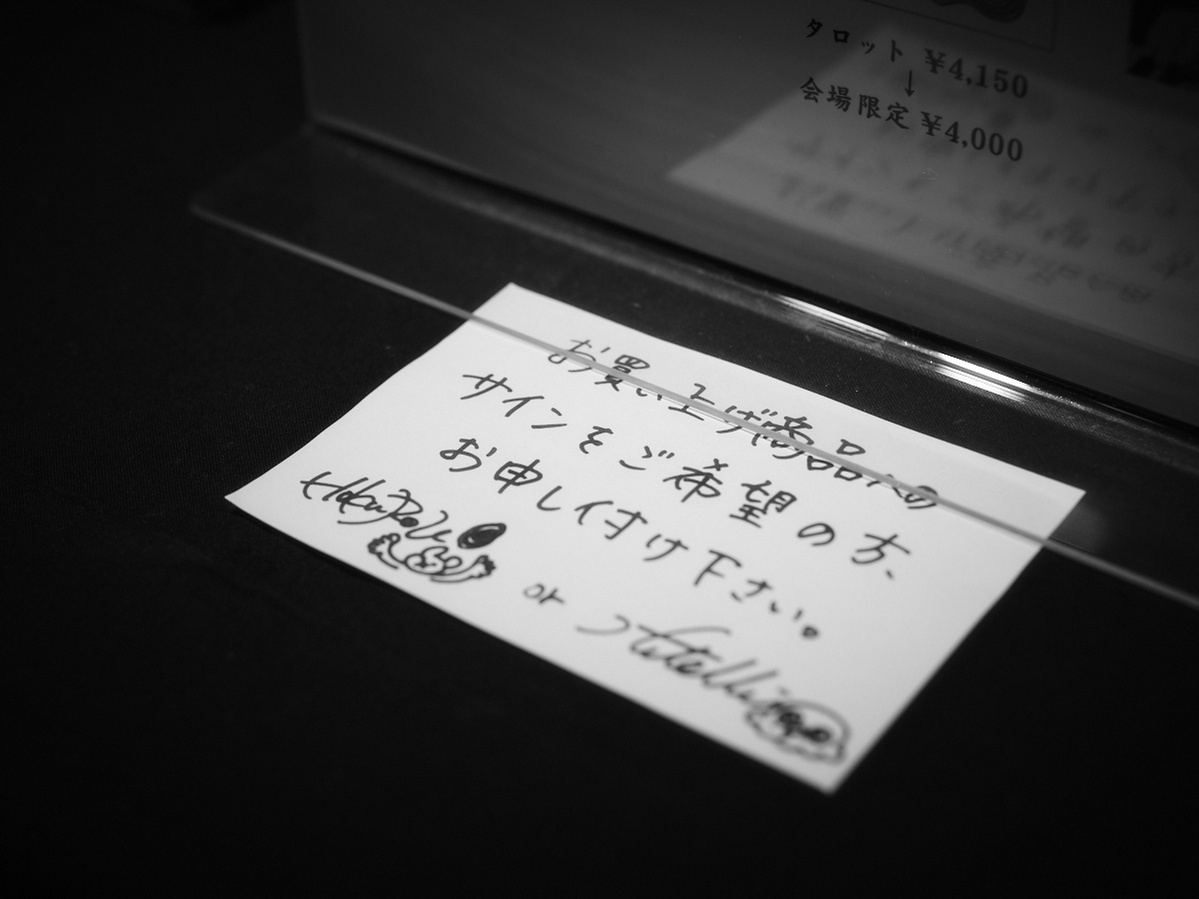 タロット ¥4,150
↓
会場限定 ¥4,000
お買い上げ商品への
サインをご希望の方、
お申し付け下さい。
or